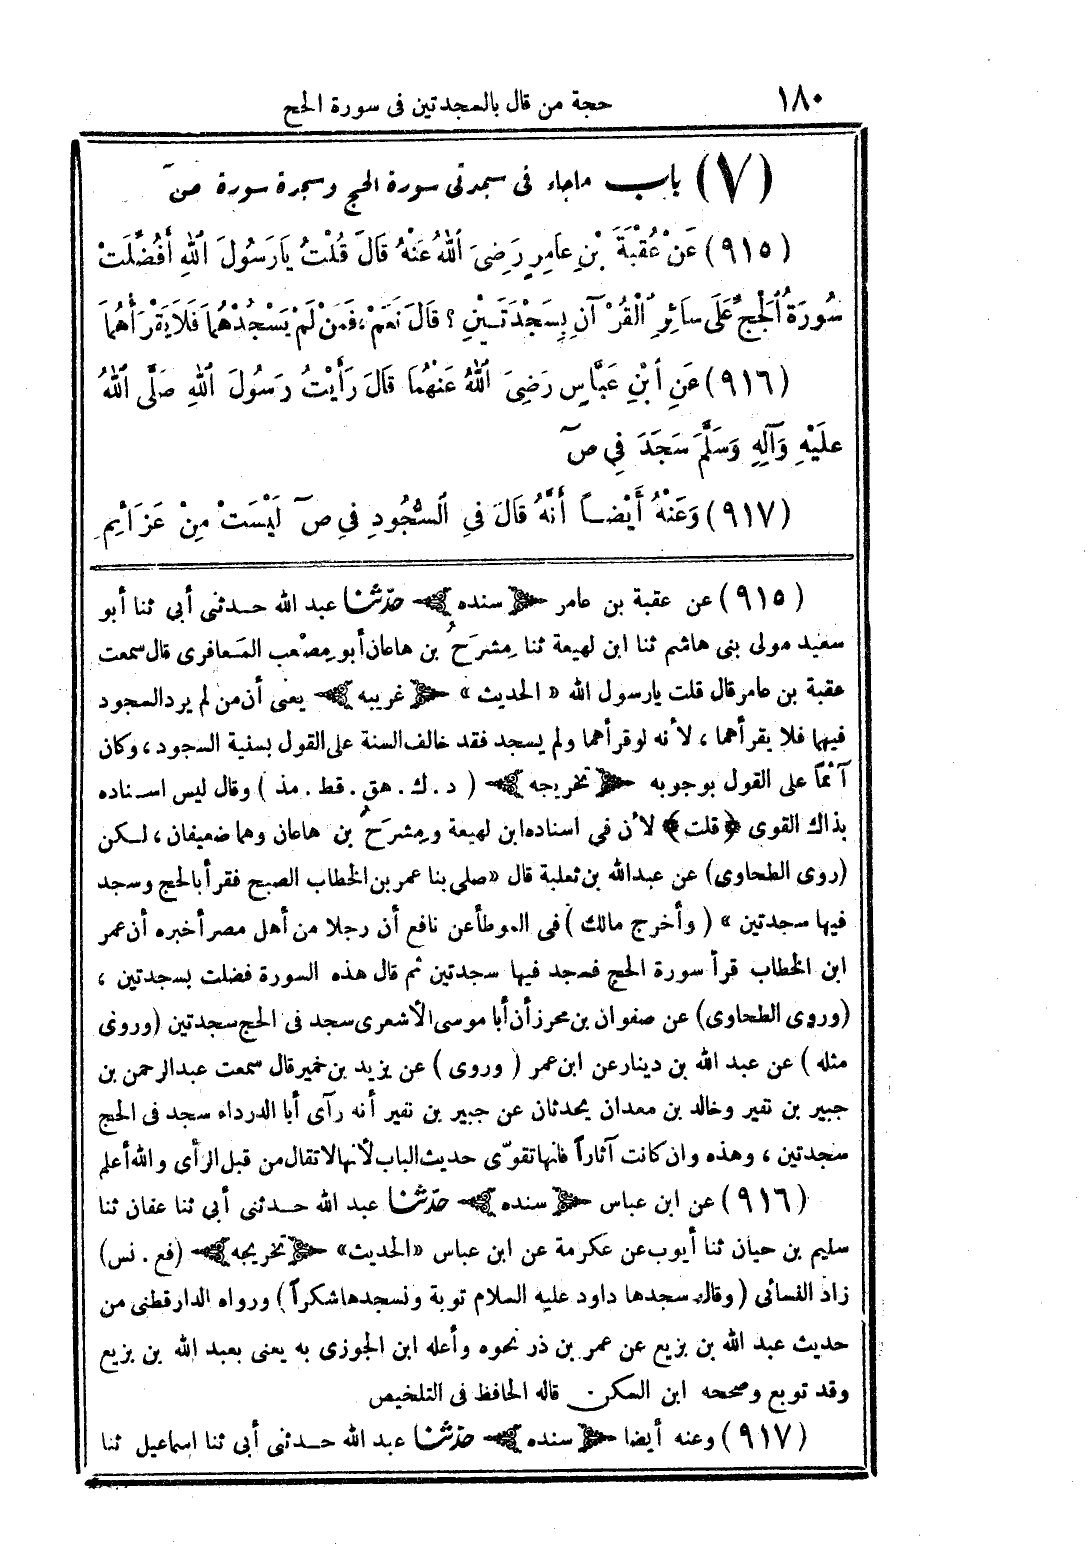 ١٨٠ حجة من قال بالسجدتين فى سورة الحج
(٧) باب ماجاء فى سجدتى سورة الحج وسجرة سورة صٓ
(٩١٥) عَنْ عُقْبَةَ بْنِ عَامِرٍ رَضِىَ ٱللهُ عَنْهُ قَالَ قُلْتُ يَارَسُولَ ٱللهِ أَفُضِّلَتْ
سُورَةُ ٱلْحَجِّ عَلَى سَائِرِ ٱلْقُرْآنِ بِسَجْدَتَيْنِ ؟ قَالَ نَعَمْ ، فَمَنْ لَمْ يَسْجُدْهُمَا فَلَا يَقْرَأْهُمَا
(٩١٦) عَنِ ٱبْنِ عَبَّاسٍ رَضِىَ ٱللهُ عَنْهُمَا قَالَ رَأَيْتُ رَسُولَ ٱللهِ صَلَّى ٱللهُ
عَلَيْهِ وَآلِهِ وَسَلَّمَ سَجَدَ فِى صٓ
(٩١٧) وَعَنْهُ أَيْضاً أَنَّهُ قَالَ فِى ٱلسُّجُودِ فِى صٓ لَيْسَتْ مِنْ عَزَائِمِ
(٩١٥) عن عقبة بن عامر ﴿ سنده ﴾ حدّثنا عبد الله حدثنى أبى ثنا أبو
سعيد مولى بنى هاشم ثنا ابن لهيعة ثنا مِشرَحُ بن هاعان أبو مِصْعب المَعافرى قال سمعت
عقبة بن عامر قال قلت يارسول الله « الحديث » ﴿ غريبه ﴾ يعنى أن من لم يرد السجود
فيها فلا يقرأهما ، لأنه لو قرأهما ولم يسجد فقد خالف السنة على القول بسنية السجود ، وكان
آثماً على القول بوجوبه ﴿ تخريجه ﴾ ( د . ك . هق . قط . مذ ) وقال ليس اسناده
بذاك القوى ﴿ قلت ﴾ لأن فى اسناده ابن لهيعة ومِشرَحُ بن هاعان وهما ضعيفان ، لـكن
(روى الطحاوى) عن عبدالله بن ثعلبة قال « صلى بنا عمر بن الخطاب الصبح فقرأ بالحج وسجد
فيها سجدتين » ( وأخرج مالك ) فى الموطأ عن نافع أن رجلا من أهل مصر أخبره أن عمر
ابن الخطاب قرأ سورة الحج فسجد فيها سجدتين ثم قال هذه السورة فضلت بسجدتين ،
(وروى الطحاوى) عن صفوان بن محرز أن أبا موسى الأشعرى سجد فى الحج سجدتين (وروى
مثله ) عن عبد الله بن دينار عن ابن عمر ( وروى ) عن يزيد بن خمير قال سمعت عبدالرحمن بن
جبير بن نفير وخالد بن معدان يحدثان عن جبير بن نفير أنه رآى أبا الدرداء سجد فى الحج
سجدتين ، وهذه وان كانت آثاراً فانها تقوّى حديث الباب لأنها لا تقال من قبل الرأى والله أعلم
(٩١٦) عن ابن عباس ﴿ سنده ﴾ حدّثنا عبد الله حدثنى أبى ثنا عفان ثنا
سليم بن حيان ثنا أيوب عن عكرمة عن ابن عباس « الحديث » ﴿ تخريجه ﴾ (فع . نس)
زاد النسائى (وقال سجدها داود عليه السلام توبة ونسجدها شكراً ) ورواه الدارقطنى من
حديث عبد الله بن بزيع عن عمر بن ذر نحوه وأعله ابن الجوزى به يعنى بعبد الله بن بزيع
وقد توبع وصححه ابن السكن قاله الحافظ فى التلخيص
(٩١٧) وعنه أيضا ﴿ سنده ﴾ حدّثنا عبد الله حدثنى أبى ثنا اسماعيل ثنا